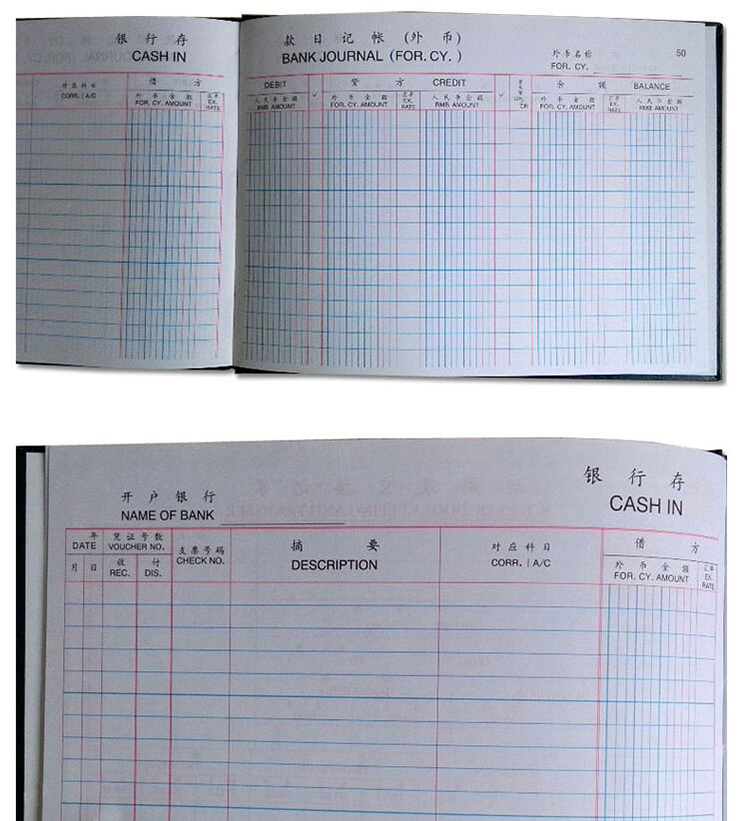 银 行 存
CASH IN
对 应 科 目
CORR. | A/C
借 方
外 币 金 额
FOR. CY. AMOUNT
汇率
EX.
RATE
款 日 记 帐 (外 币)
BANK JOURNAL (FOR. CY. )
外 币 名 称
FOR. CY.
50
DEBIT
人 民 币 金 额
RMB AMOUNT
✓
贷 方 CREDIT
外 币 金 额
FOR. CY. AMOUNT
汇率
EX.
RATE
人 民 币 金 额
RMB AMOUNT
✓
余 额 BALANCE
外 币 金 额
FOR. CY. AMOUNT
汇率
EX.
RATE
人 民 币 金 额
RMB AMOUNT
银 行 存
CASH IN
开 户 银 行
NAME OF BANK
年
DATE
月 日
凭 证 号 数
VOUCHER NO.
收 付
REC. DIS.
支 票 号 码
CHECK NO.
摘 要
DESCRIPTION
对 应 科 目
CORR. | A/C
借 方
外 币 金 额
FOR. CY. AMOUNT
汇率
EX.
RATE